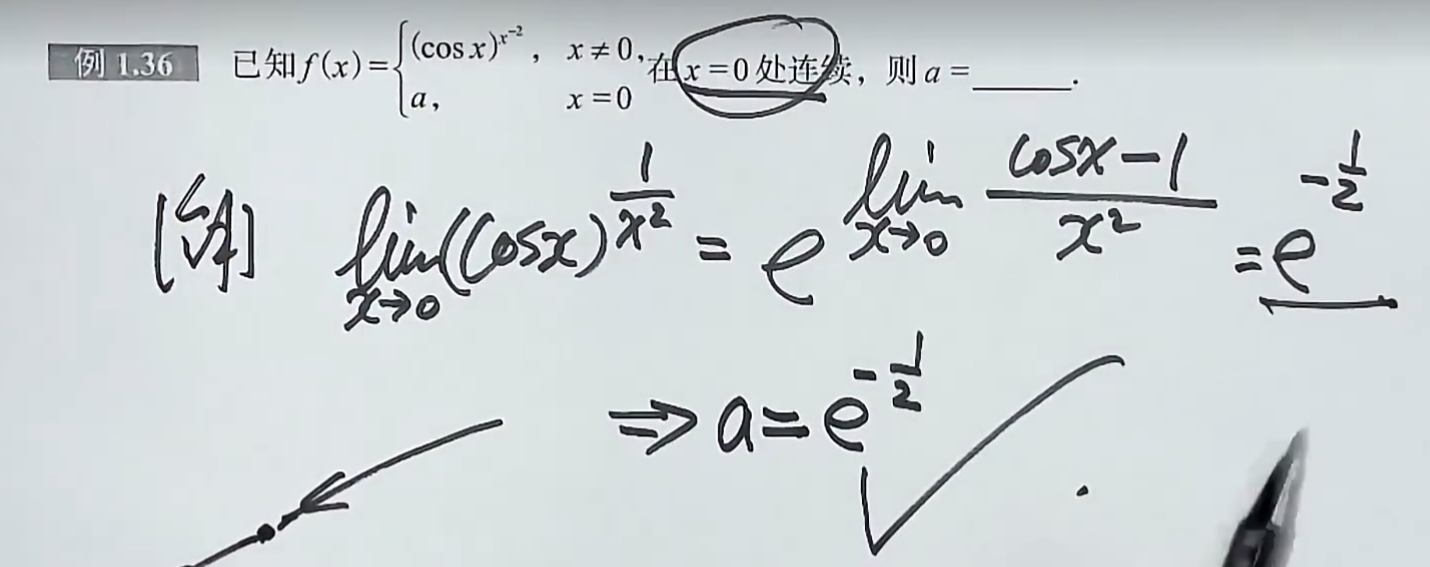 例 1.36 已知 f(x)={(cos x)^{x^{-2}}, x≠0, a, x=0 在 x=0 处连续，则 a=______.
[解] lim_{x→0}(cosx)^{\frac{1}{x^2}} = e^{lim_{x→0} \frac{cosx-1}{x^2}} = e^{-\frac{1}{2}}
⇒ a=e^{-\frac{1}{2}}